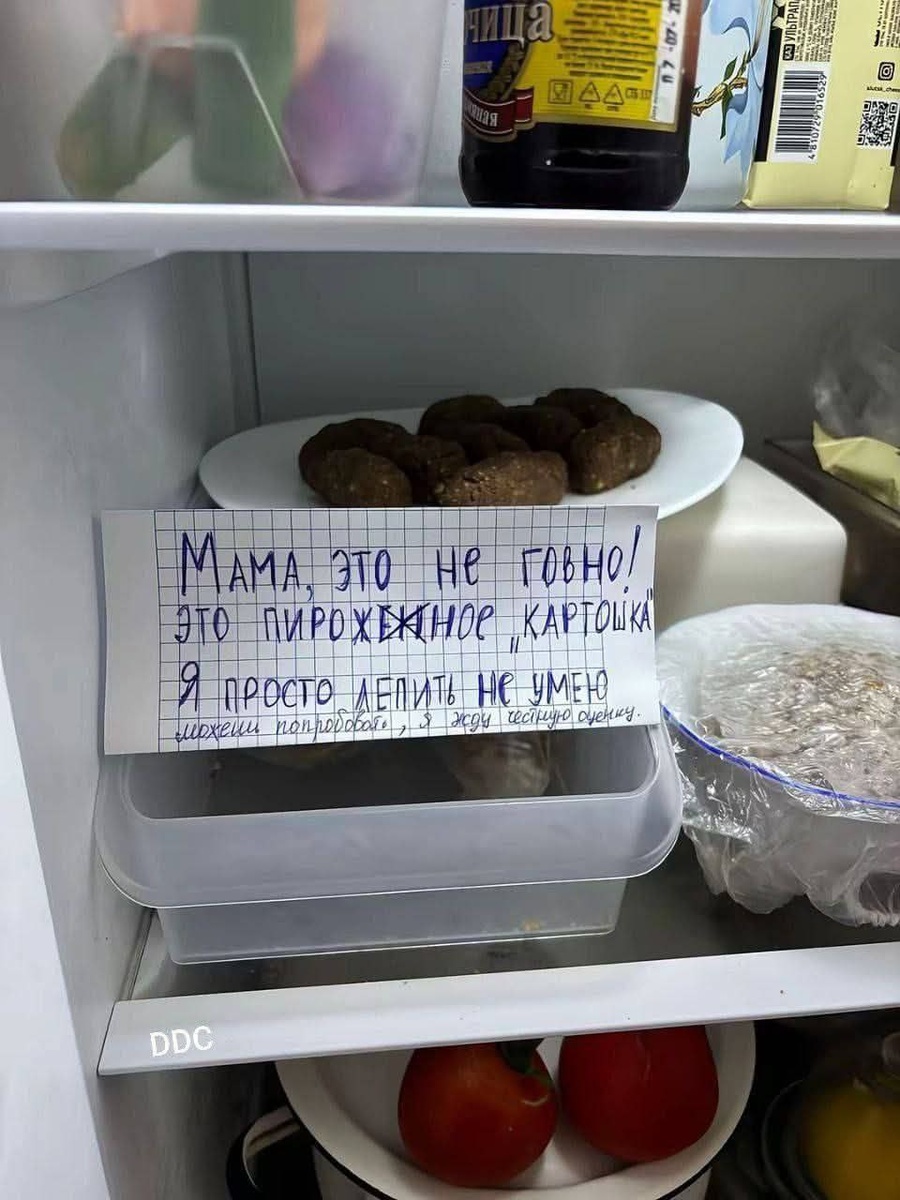 чица
УЛЬТРАП
4810729016529
Мама, это не говно!
это пирожное „картошка"
Я просто лепить не умею
можешь попробовать, я жду честную оценку.
DDC